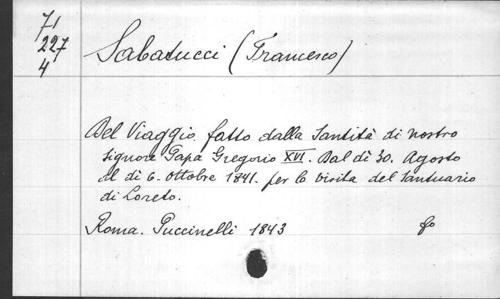 71
227
4
Sabatucci (Francesco)
Del Viaggio fatto dalla Santità di nostro
signore Papa Gregorio XVI. Dal dì 30. Agosto
al dì 6. Ottobre 1841. per la visita del Santuario
di Loreto.
Roma. Puccinelli 1843
fo